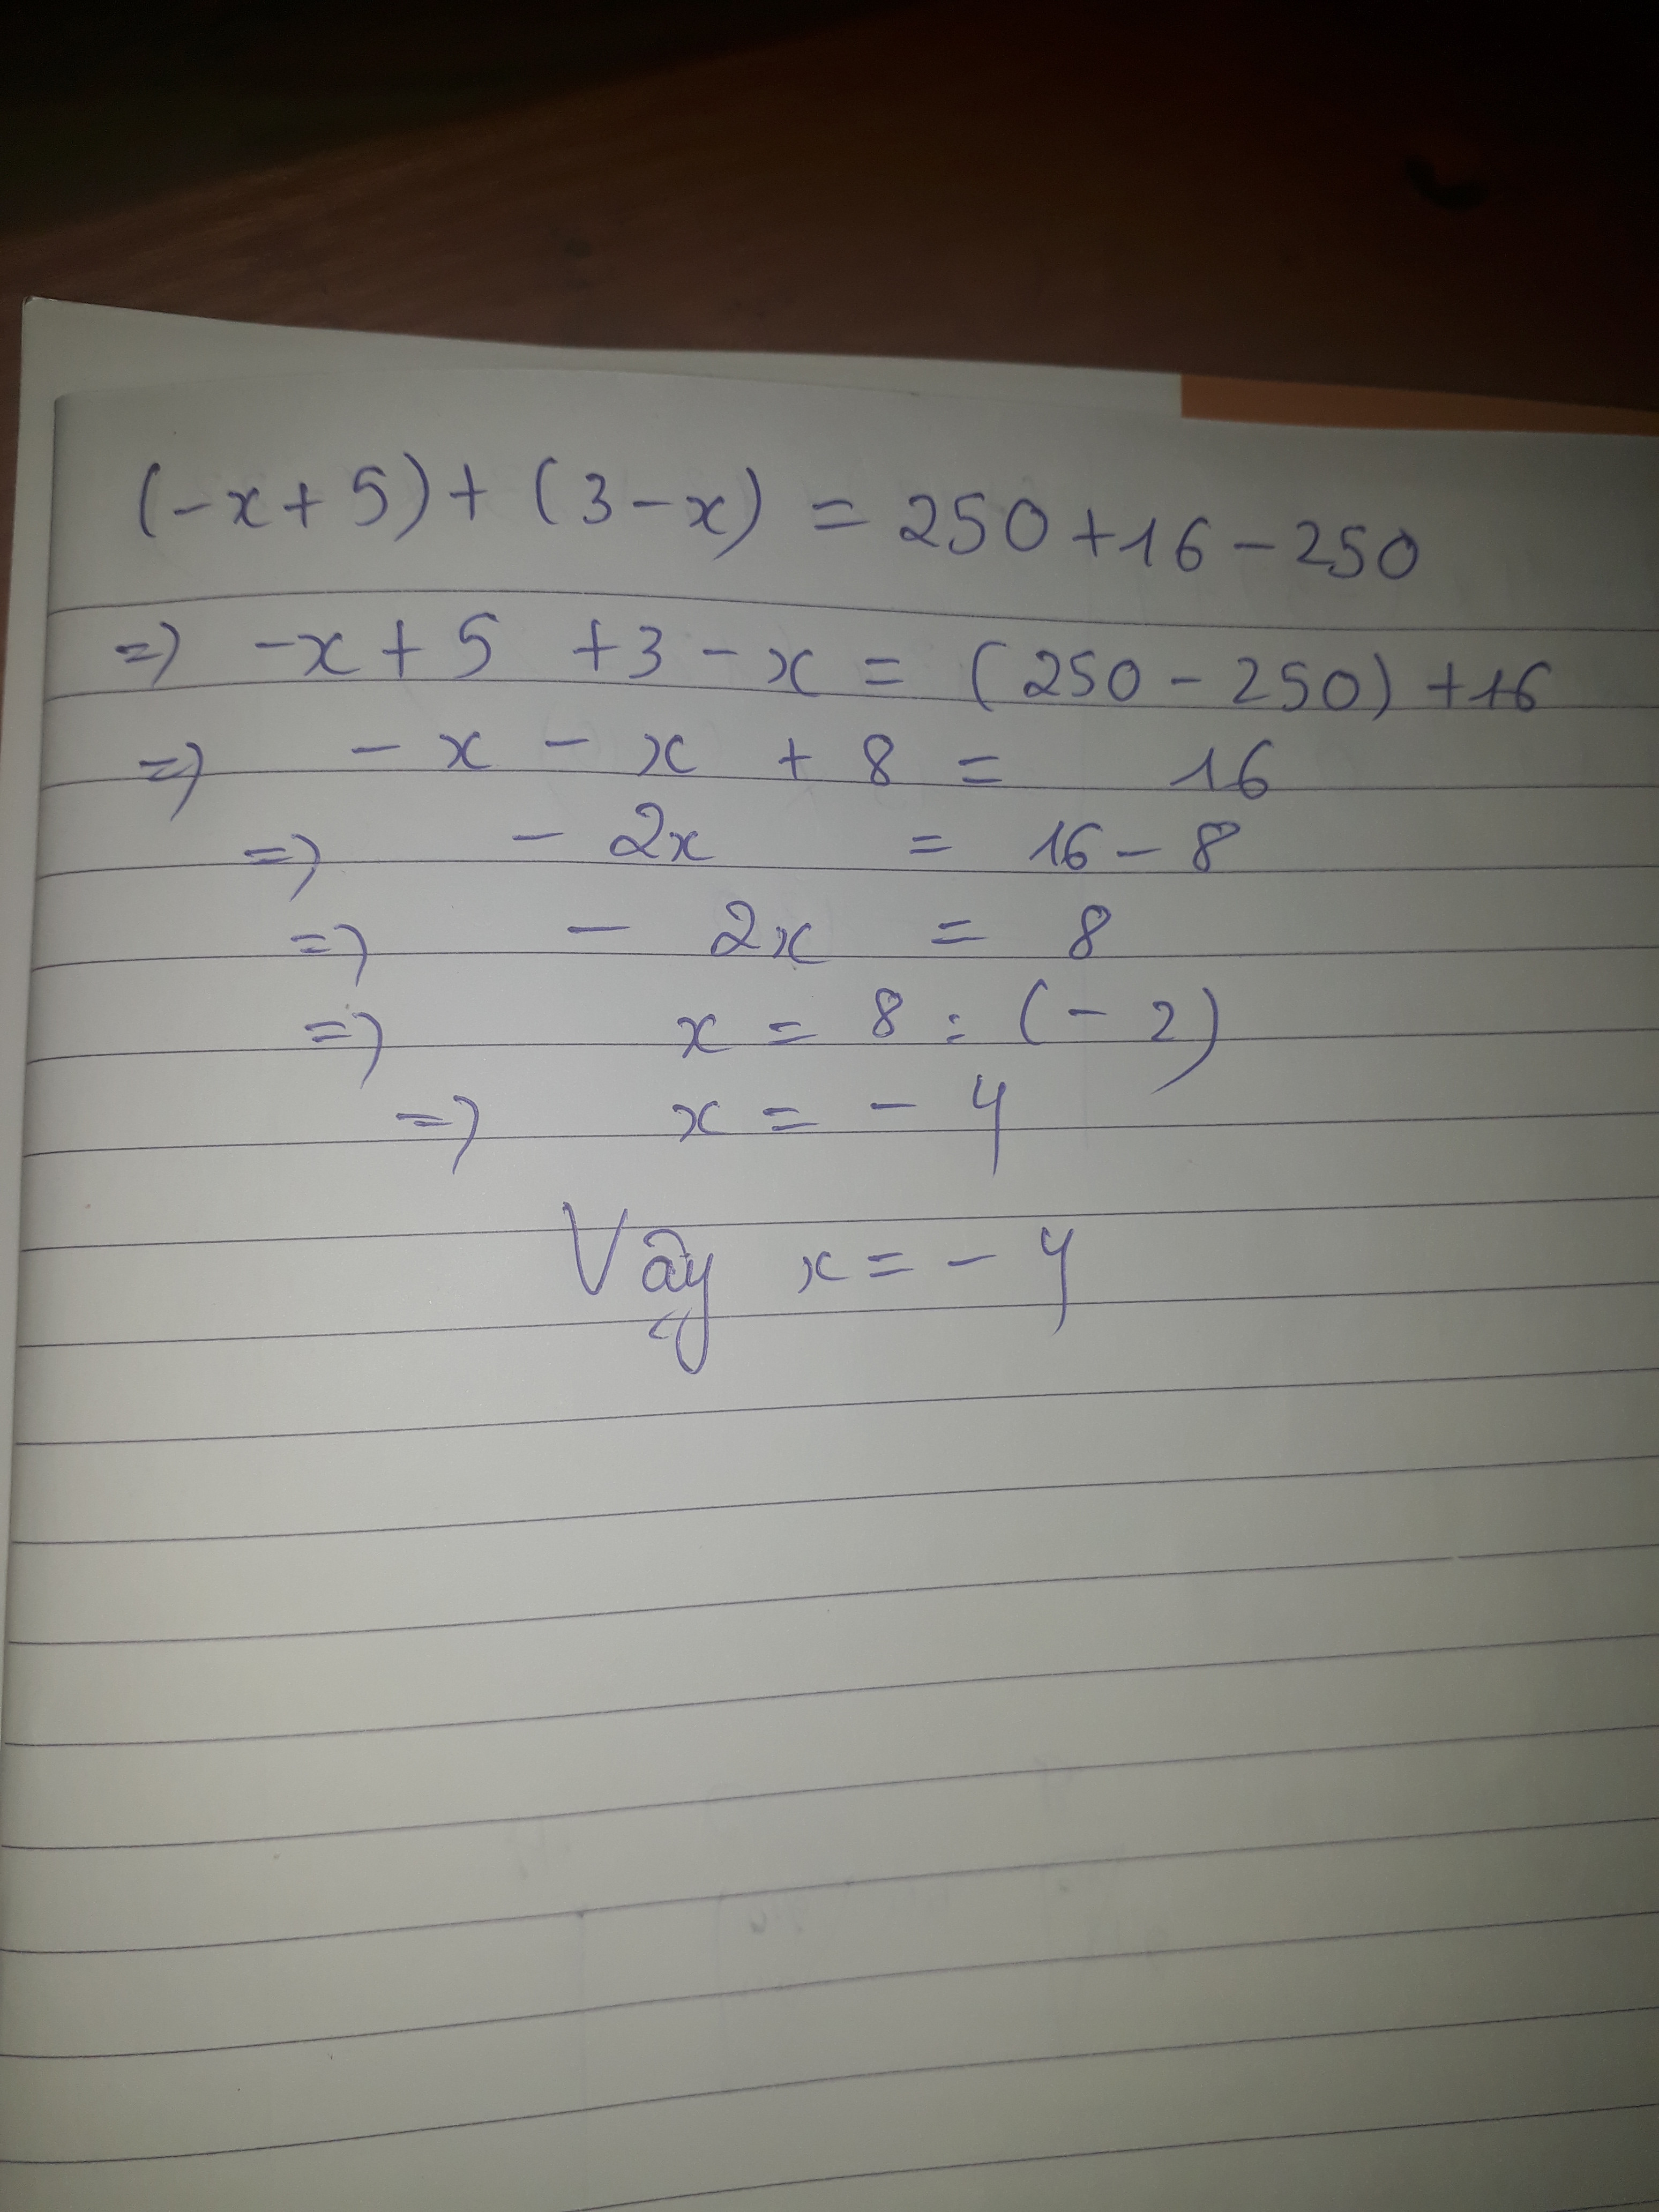 (-x+5)+(3-x) = 250+16-250
=> -x+5 +3-x = (250-250)+16
=> -x-x+8 = 16
=> -2x = 16-8
=> -2x = 8
=> x = 8:(-2)
=> x = -4
Vậy x = -4